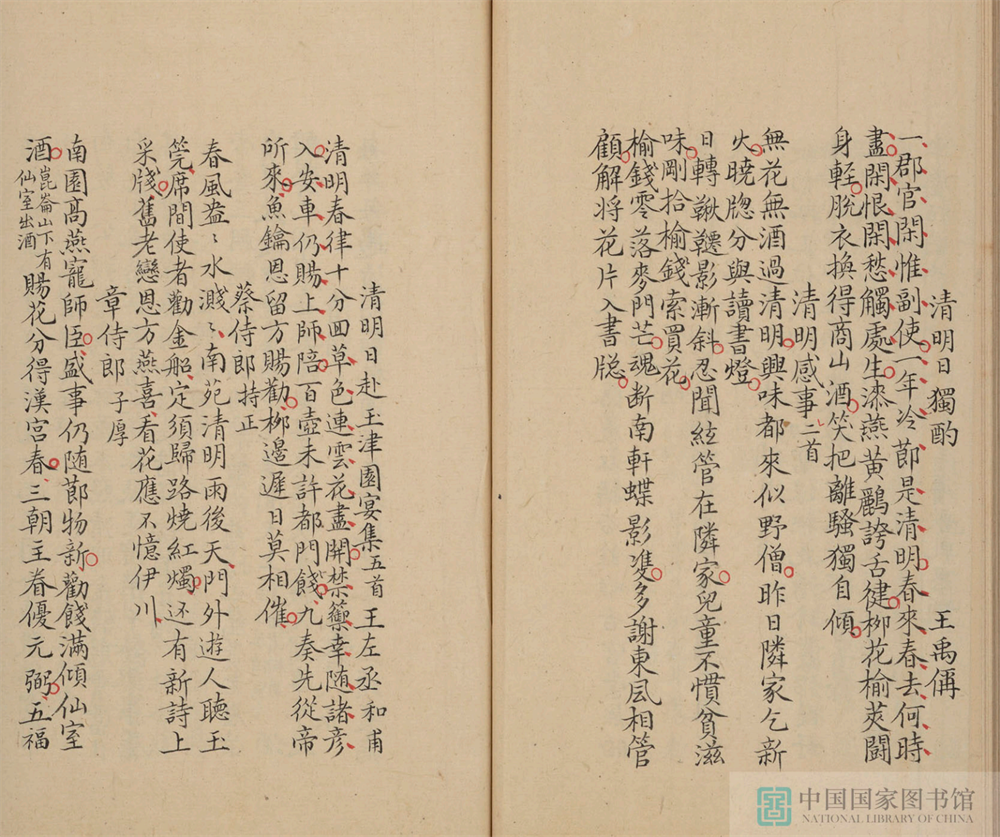 清明日獨酌 王禹偁
一郡官閑惟副使一年冷莭是清明春來春去何時
盡閑恨閑愁觸處生漆燕黃鸝誇舌健柳花榆莢鬬
身輕脫衣換得商山酒笑把離騷獨自傾
清明感事二首
無花無酒過清明興味都來似野僧昨日隣家乞新
火曉牎分與讀書燈
日轉鞦韆影漸斜忍聞絃管在隣家兒童不慣貧滋
味剛拾榆錢索買花
榆錢零落麥門芒魂断南軒蝶影䨇多謝東風相管
顧解将花片入書牎
清明日赴玉津園宴集五首 王左丞和甫
清明春律十分回草色連雲花盡開禁藥幸随諸彦
入安車仍賜上師陪百壺未許都門餞九奏先從帝
所來魚鑰恩留方賜勸柳邉遲日莫相催
蔡侍郎持正
春風盎〻水濺〻南苑清明雨後天門外遊人聽玉
筦席間使者勸金船定須歸路燒紅燭还有新詩上
采牋舊老戀恩方燕喜看花應不憶伊川
章侍郎子厚
南園髙燕寵師臣盛事仍随莭物新勸餞滿傾仙室
酒崑崙山下有仙室出酒賜花分得漢宫春三朝主眷優元弼五福
中国国家图书馆
NATIONAL LIBRARY OF CHINA